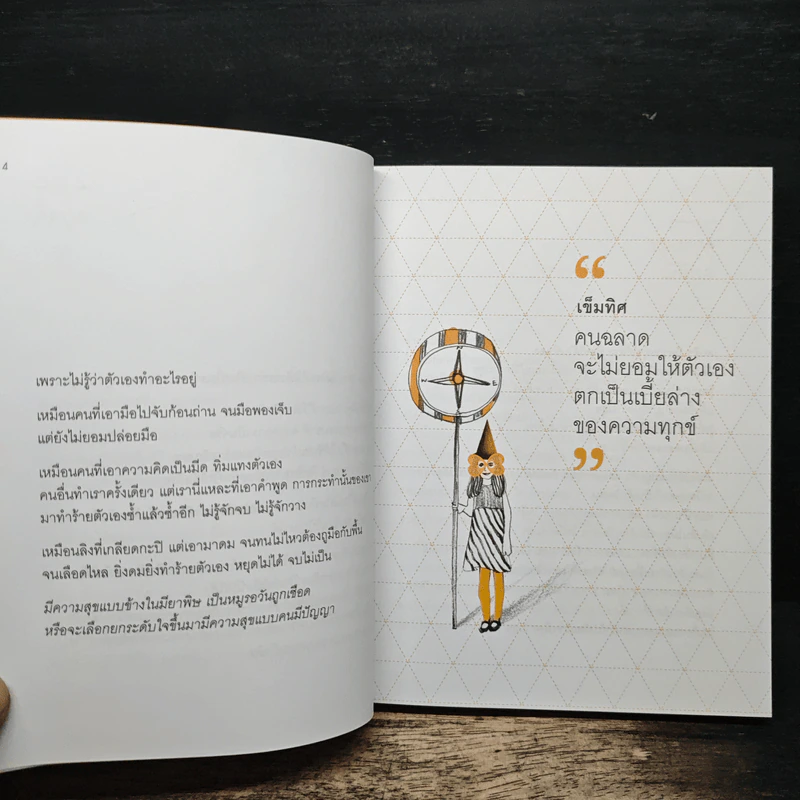 4
เพราะไม่รู้ว่าตัวเองทำอะไรอยู่
เหมือนคนที่เอามือไปจับก้อนถ่าน จนมือพองเจ็บ
แต่ยังไม่ยอมปล่อยมือ
เหมือนคนที่เอาความคิดเป็นมีด ทิ่มแทงตัวเอง
คนอื่นทำเราครั้งเดียว แต่เรานี่แหละที่เอาคำพูด การกระทำนั้นของเขา
มาทำร้ายตัวเองซ้ำแล้วซ้ำอีก ไม่รู้จักจบ ไม่รู้จักวาง
เหมือนลิงที่เกลียดกะปิ แต่เอามาดม จนทนไม่ไหวต้องถูมือกับพื้น
จนเลือดไหล ยิ่งดมยิ่งทำร้ายตัวเอง หยุดไม่ได้ จบไม่เป็น
มีความสุขแบบข้างในมียาพิษ เป็นหมูรอวันถูกเชือด
หรือจะเลือกยกระดับใจขึ้นมามีความสุขแบบคนมีปัญญา
“
เข็มทิศ
คนฉลาด
จะไม่ยอมให้ตัวเอง
ตกเป็นเบี้ยล่าง
ของความทุกข์
”